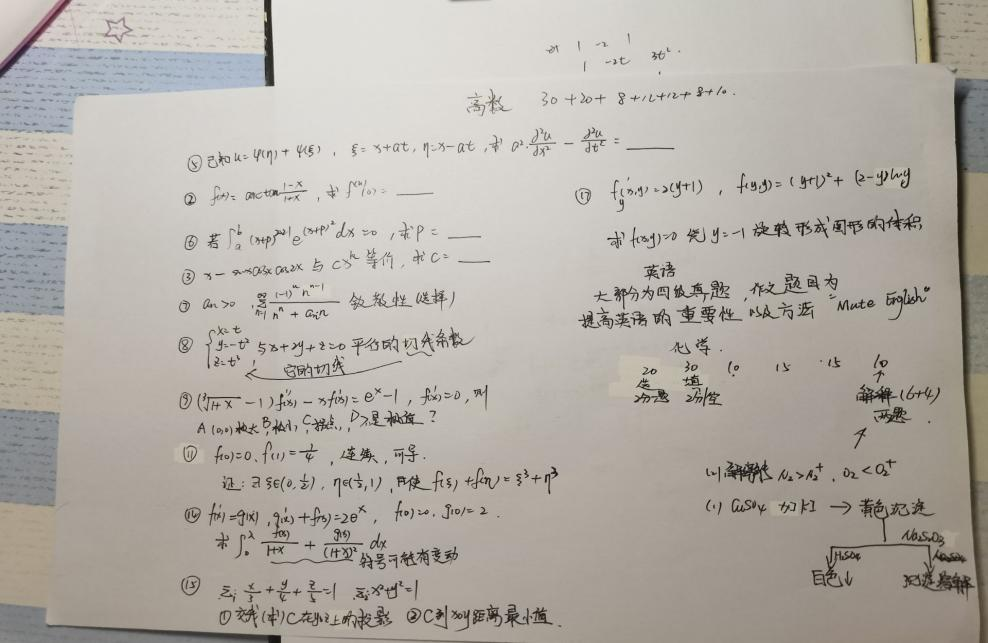 21 1 -2 1
1 -2t 3t².
高数 30+20+8+12+12+8+10.
⑤ 已知u=φ(η)+ψ(ξ), ξ=x+at, η=x-at, 求 a²·∂²u/∂x² - ∂²u/∂t² = ____
② f(x)=arctan (1-x)/(1+x), 求f⁽ⁿ⁾(0)= ____
⑥ 若∫ₐᵇ (x+p)²⁰²¹ e^(x+p)² dx=0, 求P= ____
③ x-sinxcosxcos2x 与 cxᵏ 等价, 求C= ____
⑦ an>0, ∑ₙ₌₁^∞ (-1)ⁿ nⁿ⁻¹ / nⁿ+ 敛散性(选择)
⑧ {x=t y=-t² z=t³, 5x+2y+z=0 平行的切线条数
它的切线
⑨ (∛(1+x) -1)f''(x)-xf'(x)=eˣ-1, f'(x)=0, 则
A (0,0)极大 B 极小, C 拐点, D 不是极值?
⑪ f(0)=0, f(1)=1/4, 连续, 可导.
证: ∃ξ∈(0,½), η∈(½,1), 使f'(ξ)+f'(η)=ξ³+η³
⑭ f'(x)=g(x), g'(x)+f(x)=2eˣ, f(0)=0, g(0)=2.
求 f(x)/(1+x) + g(x)/(1+x)² dx
符号可能有变动
⑮ Σ₁ x/3+y/4+z/5=1 Σ₂x²+y²=1
① 交线(求)C在yoz上的投影 ② C到xoy距离最小值.
⑰ f'y(x,y)=2(y+1), f(y,y)=(y+1)²+(2-y)lny
求f(x,y)=0 绕y=-1旋转形成图形的体积
英语
大部分为四级真题, 作文题目为
提高英语的重要性以及方法 "Mute English"
化学.
20 30 10 15 15 10
选 填
2分/题 2分/空
解释(6+4)
两题
(2) 解释 N₂>N₂⁺, O₂<O₂⁺
(1) CuSO₄ 加KI → 黄色沉淀
Na₂S₂O₃
H₂SO₄
白色↓ 沉淀溶解